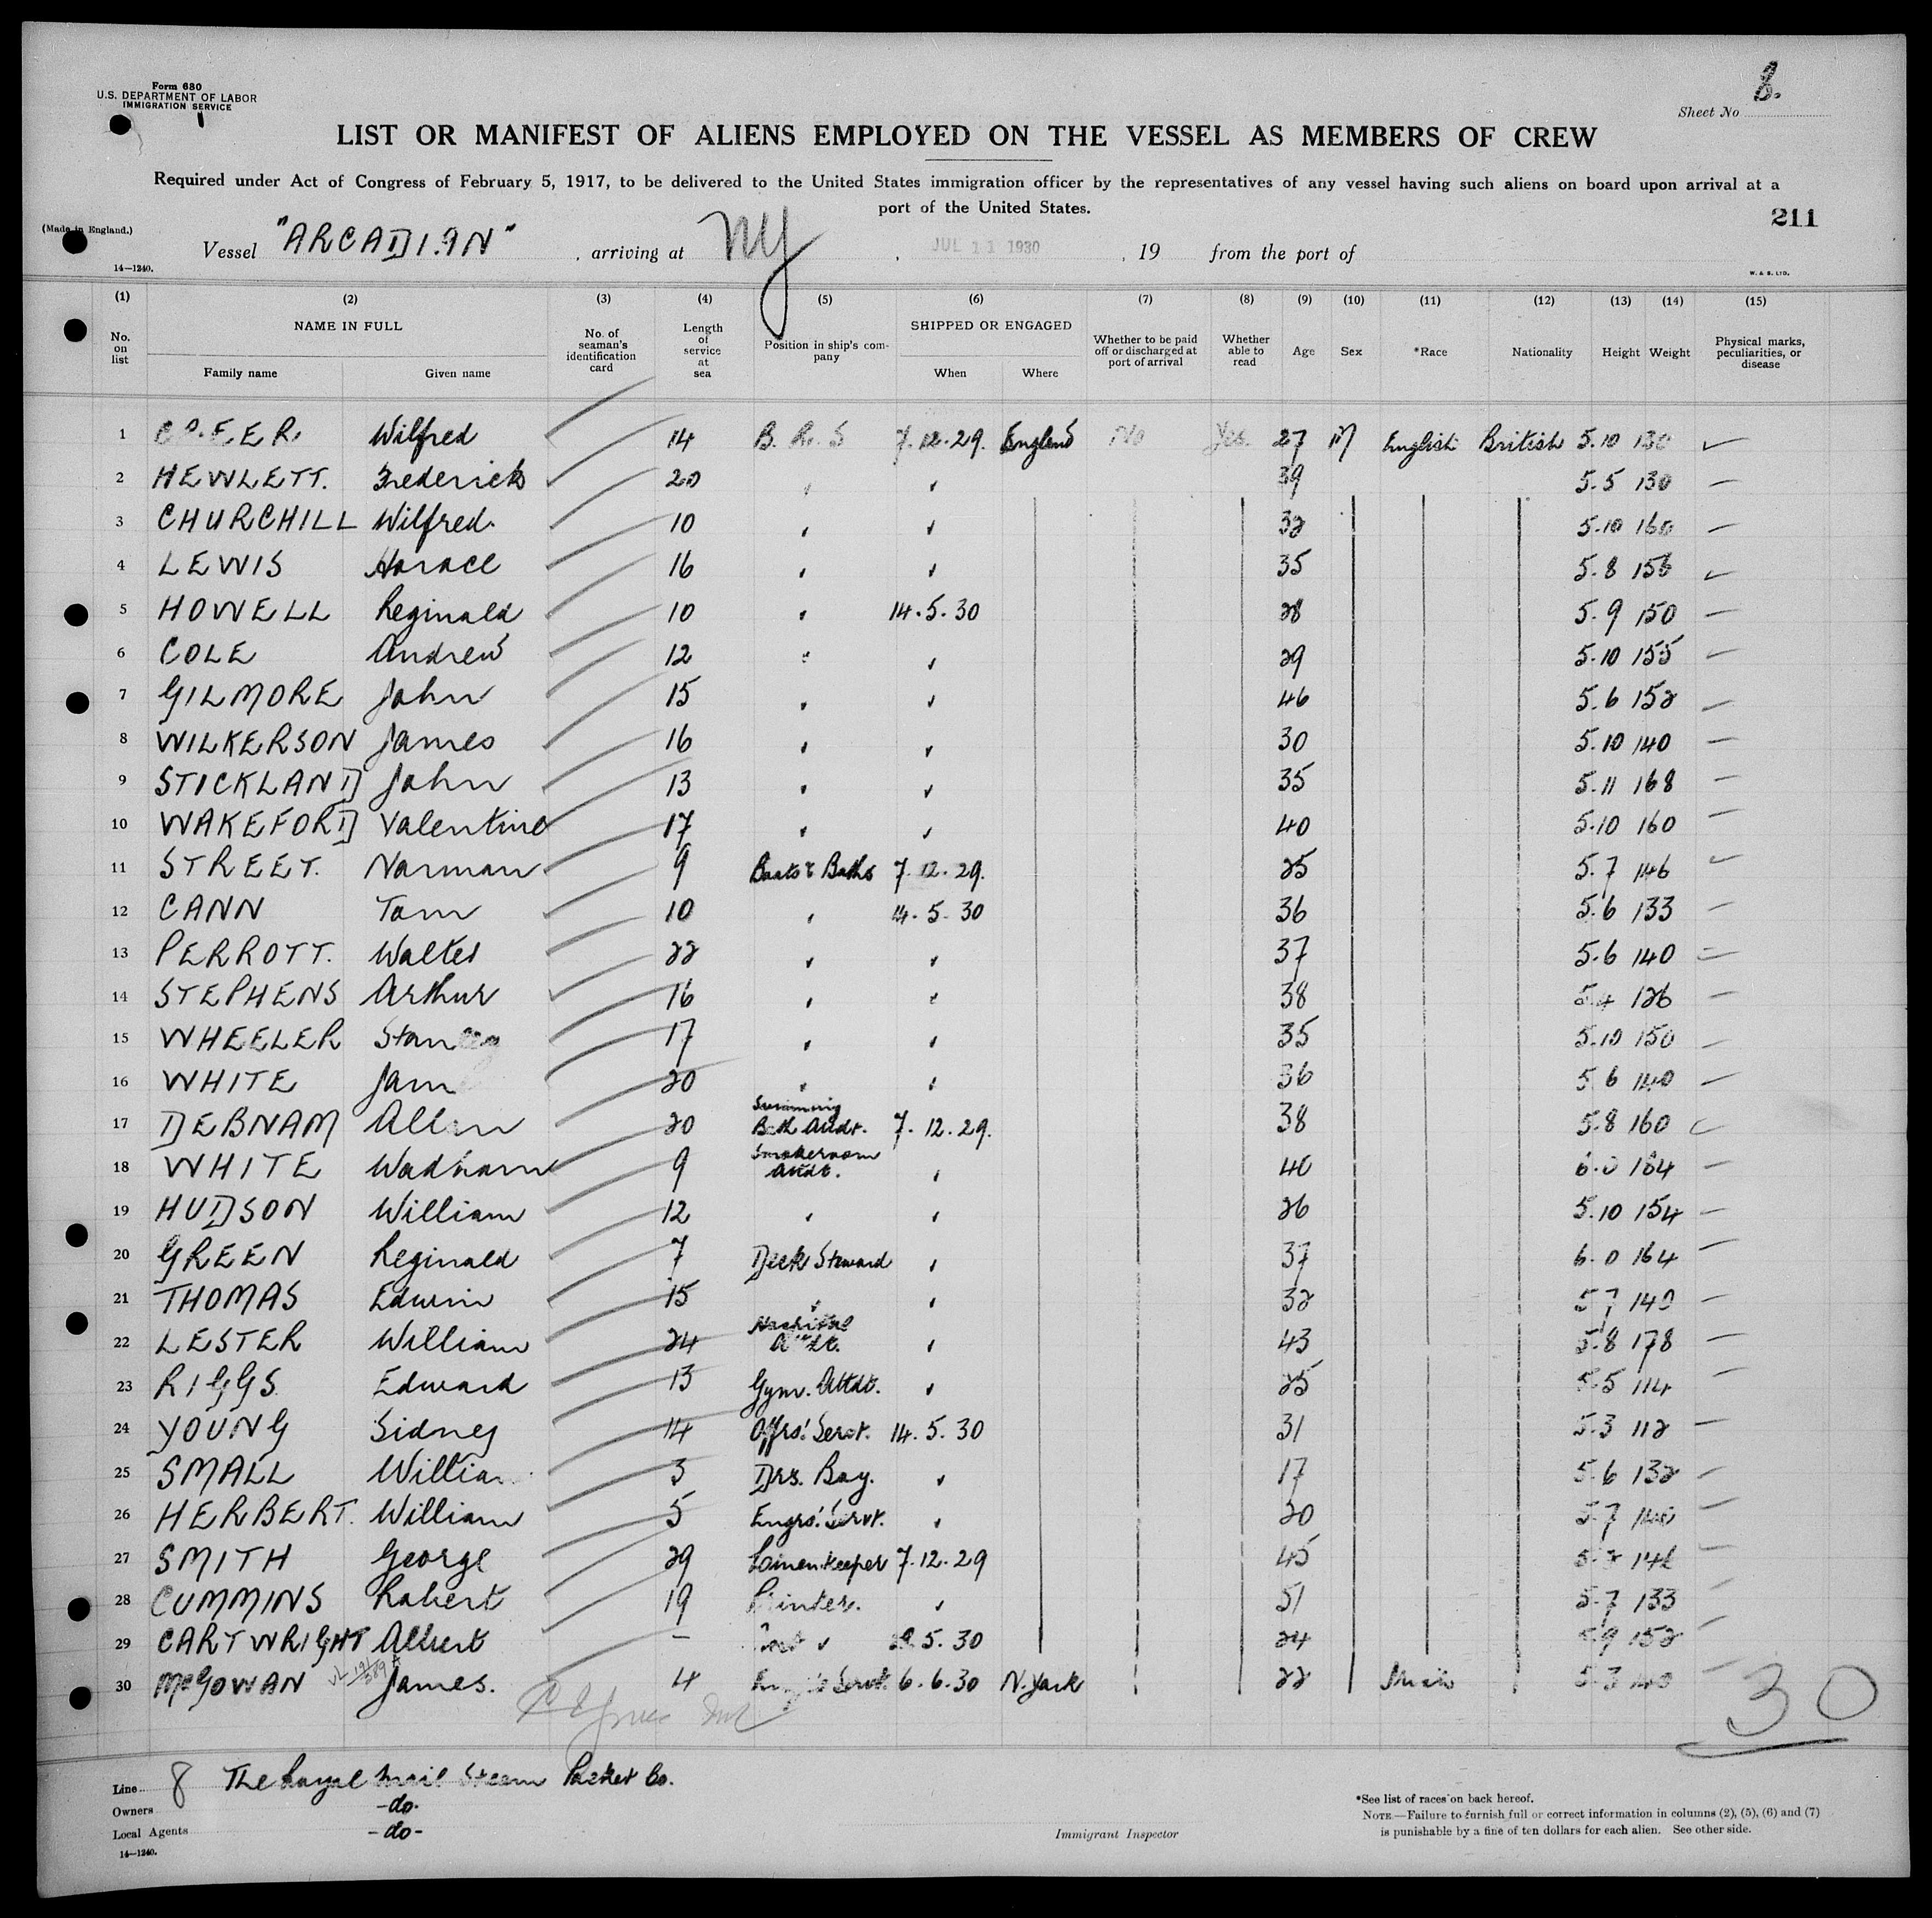 Form 680
U.S. DEPARTMENT OF LABOR
IMMIGRATION SERVICE
Sheet No 8.
LIST OR MANIFEST OF ALIENS EMPLOYED ON THE VESSEL AS MEMBERS OF CREW
Required under Act of Congress of February 5, 1917, to be delivered to the United States immigration officer by the representatives of any vessel having such aliens on board upon arrival at a
port of the United States.
211
(Made in England.)
Vessel "ARCADIAN" , arriving at NY , JUL 11 1930 , 19 from the port of
14—1240. W. & S. LTD.
(1) (2) (3) (4) (5) (6) (7) (8) (9) (10) (11) (12) (13) (14) (15)
No. on list NAME IN FULL Family name Given name No. of seaman's identification card Length of service at sea Position in ship's company SHIPPED OR ENGAGED When Where Whether to be paid off or discharged at port of arrival Whether able to read Age Sex *Race Nationality Height Weight Physical marks, peculiarities, or disease
1 Wilfred 14 B. R. S 7.12.29. England No Yes. 27 M English British 5.10 130
2 HEWLETT. Frederick 20 39 5.5 130
3 CHURCHILL Wilfred. 10 32 5.10 160
4 LEWIS Horace 16 35 5.8 156
5 HOWELL Reginald 10 14.5.30 28 5.9 150
6 COLE Andrew 12 29 5.10 155
7 GILMORE John 15 46 5.6 152
8 WILKERSON James 16 30 5.10 140
9 STICKLAND John 13 35 5.11 168
10 WAKEFORD Valentine 17 40 5.10 160
11 STREET. Norman 9 Boots & Baths 7.12.29. 25 5.7 146
12 CANN Tom 10 14.5.30 36 5.6 133
13 PERROTT. Walter 22 37 5.6 140
14 STEPHENS Arthur 16 38 5.4 126
15 WHEELER Stanley 17 35 5.10 150
16 WHITE Jam 20 36 5 6 140
17 DEBNAM Allen 20 Swimming Bath Attdt. 7.12.29. 38 5.8 160
18 WHITE Wadham 9 Smokeroom Attdt. 40 6.0 184
19 HUDSON William 12 26 5.10 154
20 GREEN Reginald 7 Deck Steward 37 6.0 164
21 THOMAS Edwin 15 32 5 7 140
22 LESTER William 24 Hospital Attdt. 43 5.8 178
23 RIGGS Edward 13 Gym. Attdt. 25 5.5 114
24 YOUNG Sidney 14 Offrs' Servt. 14.5.30 31 5.3 112
25 SMALL William 3 Drs. Boy. 17 5.6 132
26 HERBERT. William 5 Engrs' Servt. 20 5.7 140
27 SMITH George 29 Linenkeeper 7.12.29 45
28 CUMMINS Robert 19 Printer. 51 5.7 133
29 CARTWRIGHT Albert - 5.30 24 5 9 152
30 McGOWAN James. 4 Servt. 6.6.30 N. York 22 Irish 5.3 140
30
Line 8 The Royal Mail Steam Packet Co.
Owners -do.
Local Agents -do-
14—1240.
Immigrant Inspector
*See list of races on back hereof.
NOTE.—Failure to furnish full or correct information in columns (2), (5), (6) and (7)
is punishable by a fine of ten dollars for each alien. See other side.